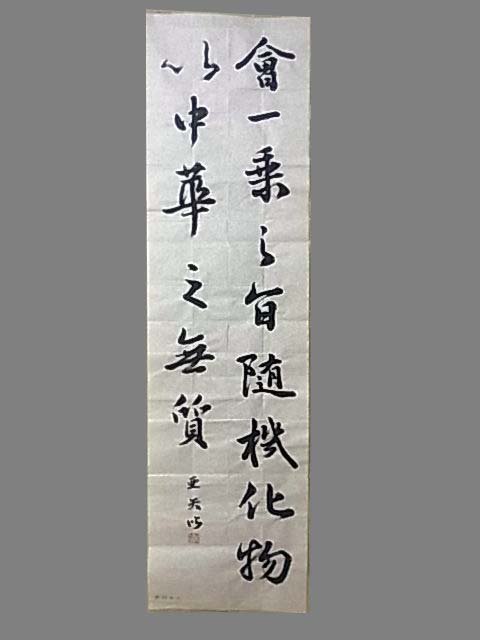 會一乗之旨随機化物
以中華之無質